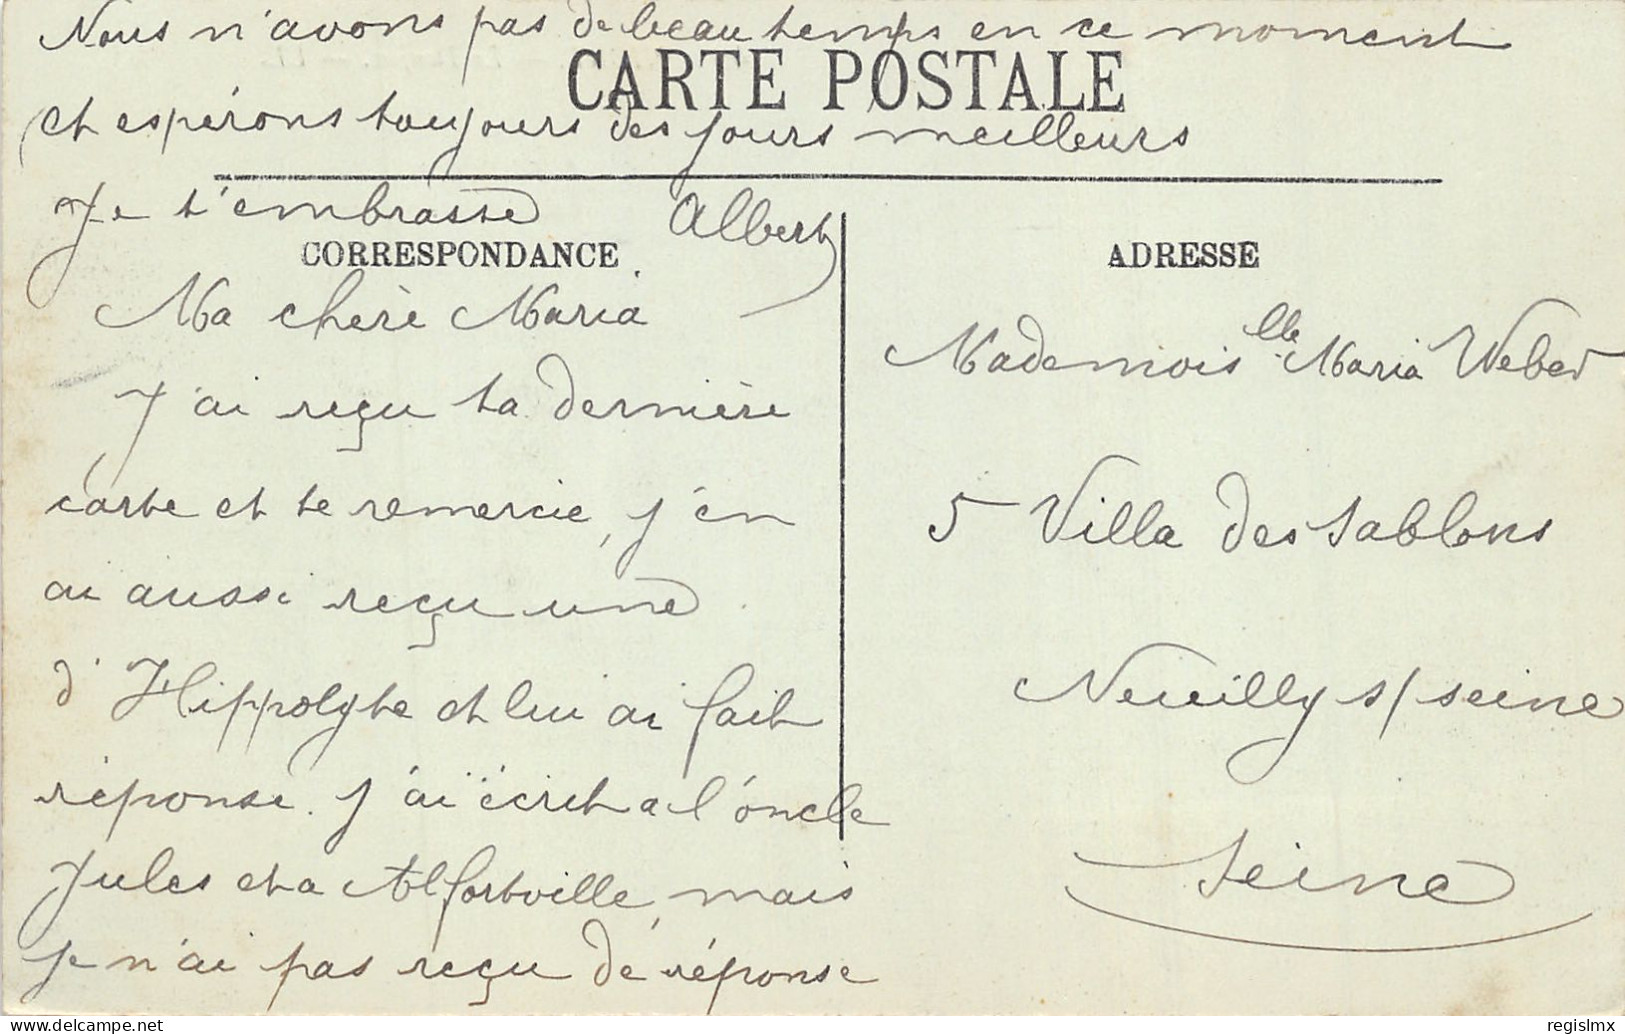 Nous n'avons pas de beau temps en ce moment
CARTE POSTALE
et espérons toujours des jours meilleurs
Je t'embrasse Albert
CORRESPONDANCE
Ma chère Maria
J'ai reçu ta dernière
carte et te remercie, j'en
ai aussi reçu une
d'Hippolyte et lui ai fait
réponse. J'ai écrit a l'oncle
Jules et a Alfortville, mais
je n'ai pas reçu de réponse
ADRESSE
Mademoiselle Maria Weber
5 Villa des Sablons
Neuilly s/seine
Seine
delcampe.net
regislmx